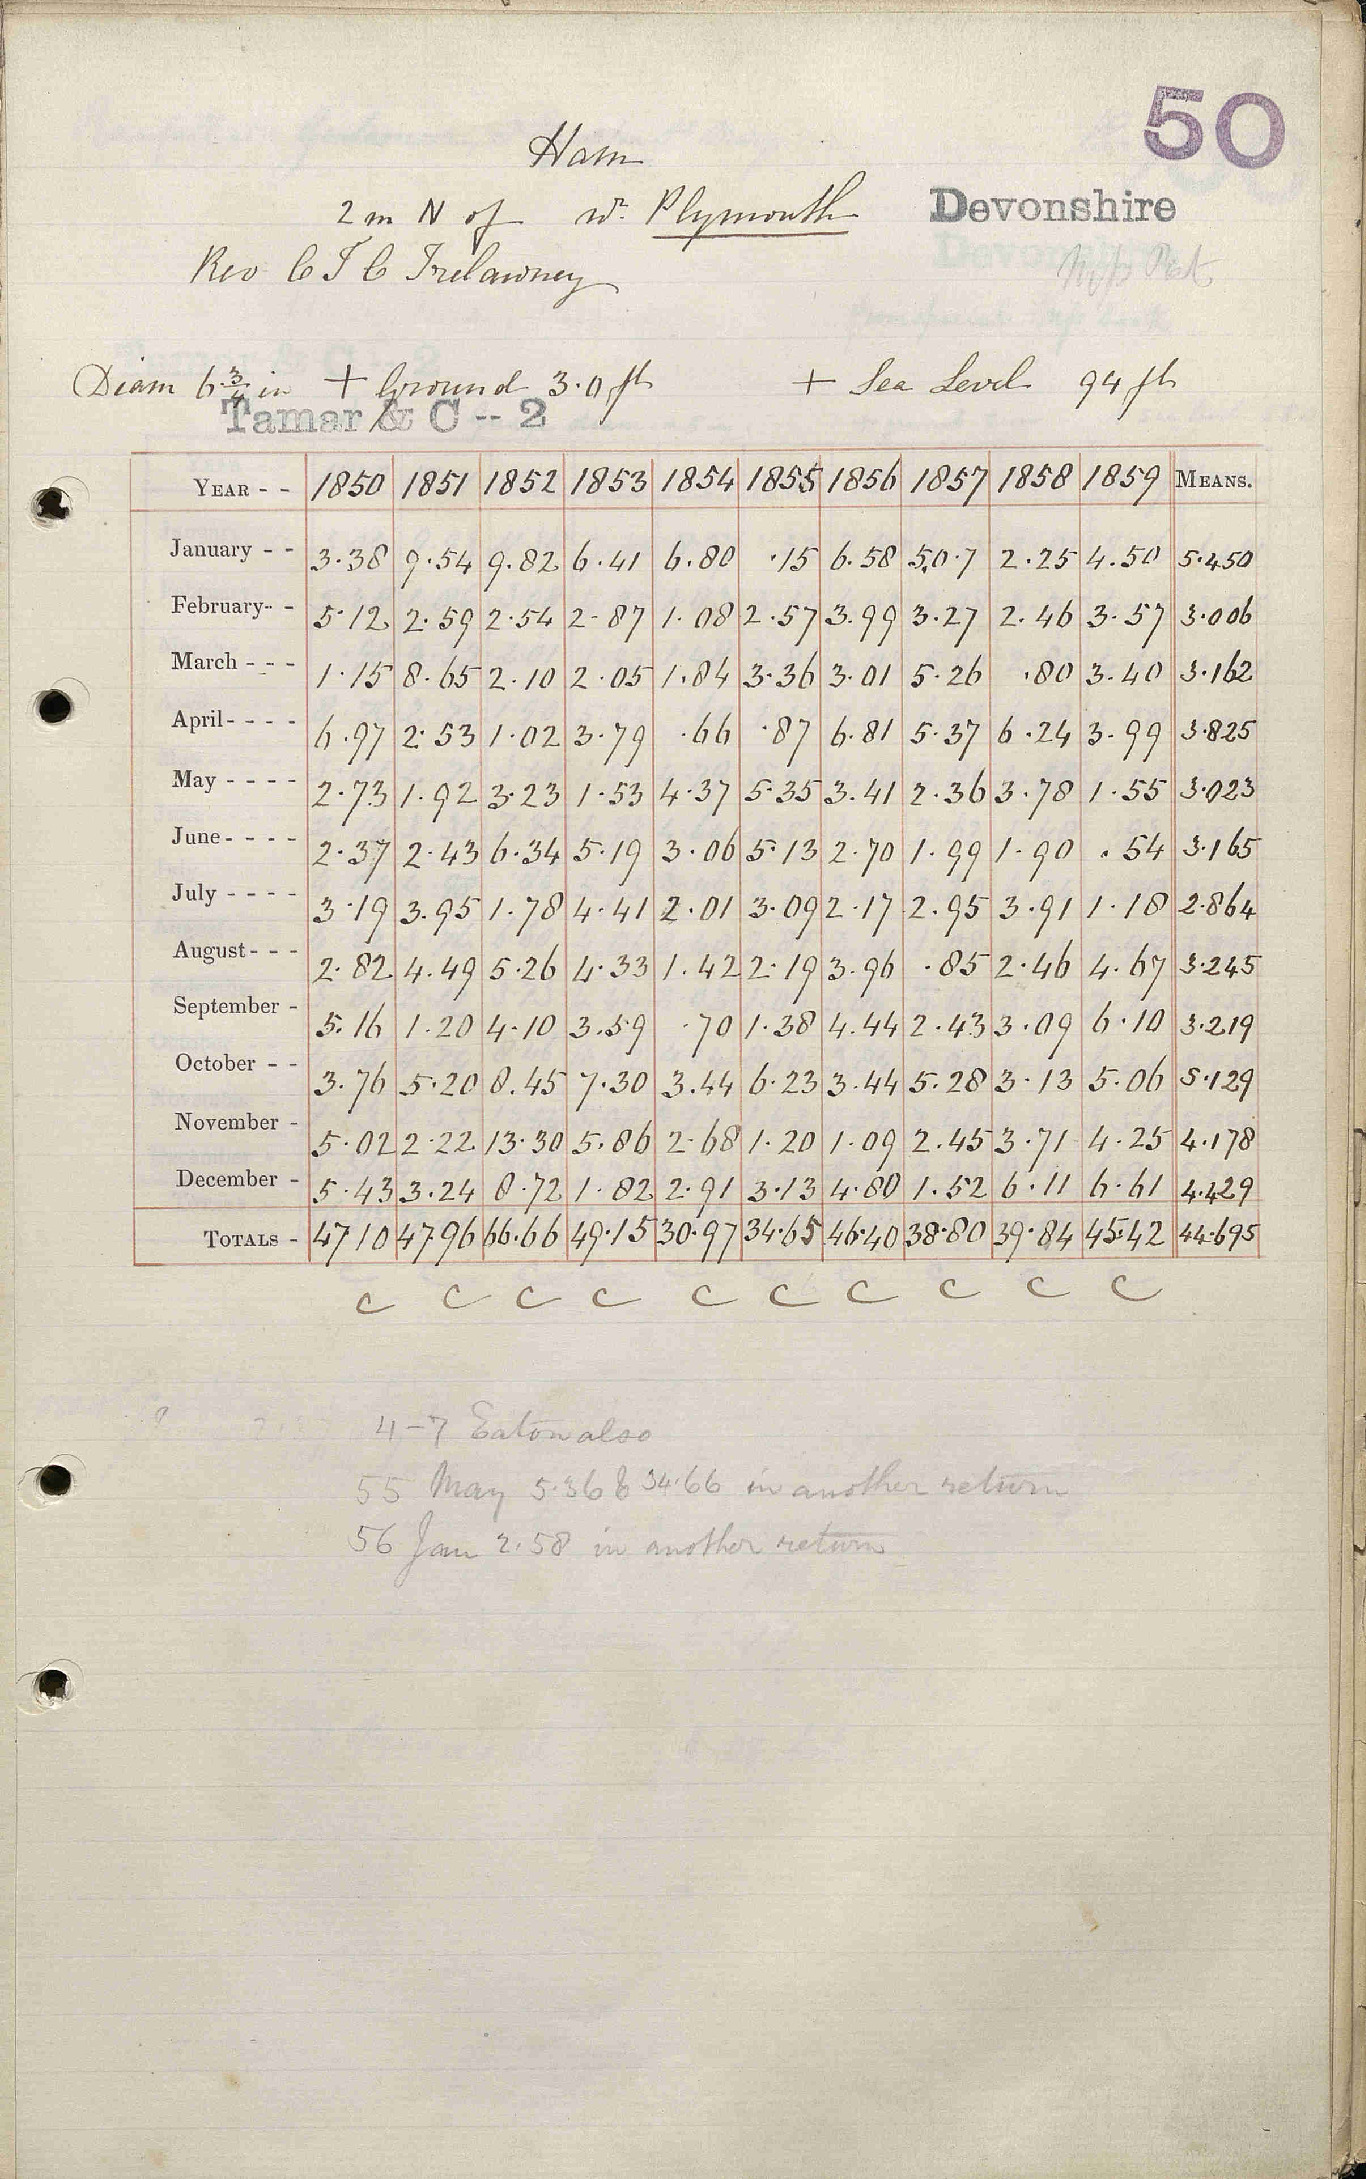 50
Ham
2 m N of W. Plymouth Devonshire
Rev C T C Trelawney
Diam 6 3/4 in + Ground 3.0 ft + Sea Level 94 ft
Tamar & C -- 2
YEAR - - 1850 1851 1852 1853 1854 1855 1856 1857 1858 1859 MEANS.
January - - 3.38 9.54 9.82 6.41 6.80 .15 6.58 5.07 2.25 4.50 5.450
February - - 5.12 2.59 2.54 2.87 1.08 2.57 3.99 3.27 2.46 3.57 3.006
March - - - 1.15 8.65 2.10 2.05 1.84 3.36 3.01 5.26 .80 3.40 3.162
April - - - - 6.97 2.53 1.02 3.79 .66 .87 6.81 5.37 6.24 3.99 3.825
May - - - - 2.73 1.92 3.23 1.53 4.37 5.35 3.41 2.36 3.78 1.55 3.023
June - - - - 2.37 2.43 6.34 5.19 3.06 5.13 2.70 1.99 1.90 .54 3.165
July - - - - 3.19 3.95 1.78 4.41 2.01 3.09 2.17 2.95 3.91 1.18 2.864
August - - - 2.82 4.49 5.26 4.33 1.42 2.19 3.96 .85 2.46 4.67 3.245
September - 5.16 1.20 4.10 3.59 .70 1.38 4.44 2.43 3.09 6.10 3.219
October - - 3.76 5.20 8.45 7.30 3.44 6.23 3.44 5.28 3.13 5.06 5.129
November - 5.02 2.22 13.30 5.86 2.68 1.20 1.09 2.45 3.71 4.25 4.178
December - 5.43 3.24 8.72 1.82 2.91 3.13 4.80 1.52 6.11 6.61 4.429
TOTALS - 47.10 47.96 66.66 49.15 30.97 34.65 46.40 38.80 39.84 45.42 44.695
C C C C C C C C C C
4-7 Eaton also
55 May 5.36 & 34.66 in another return
56 Jan 2.58 in another return